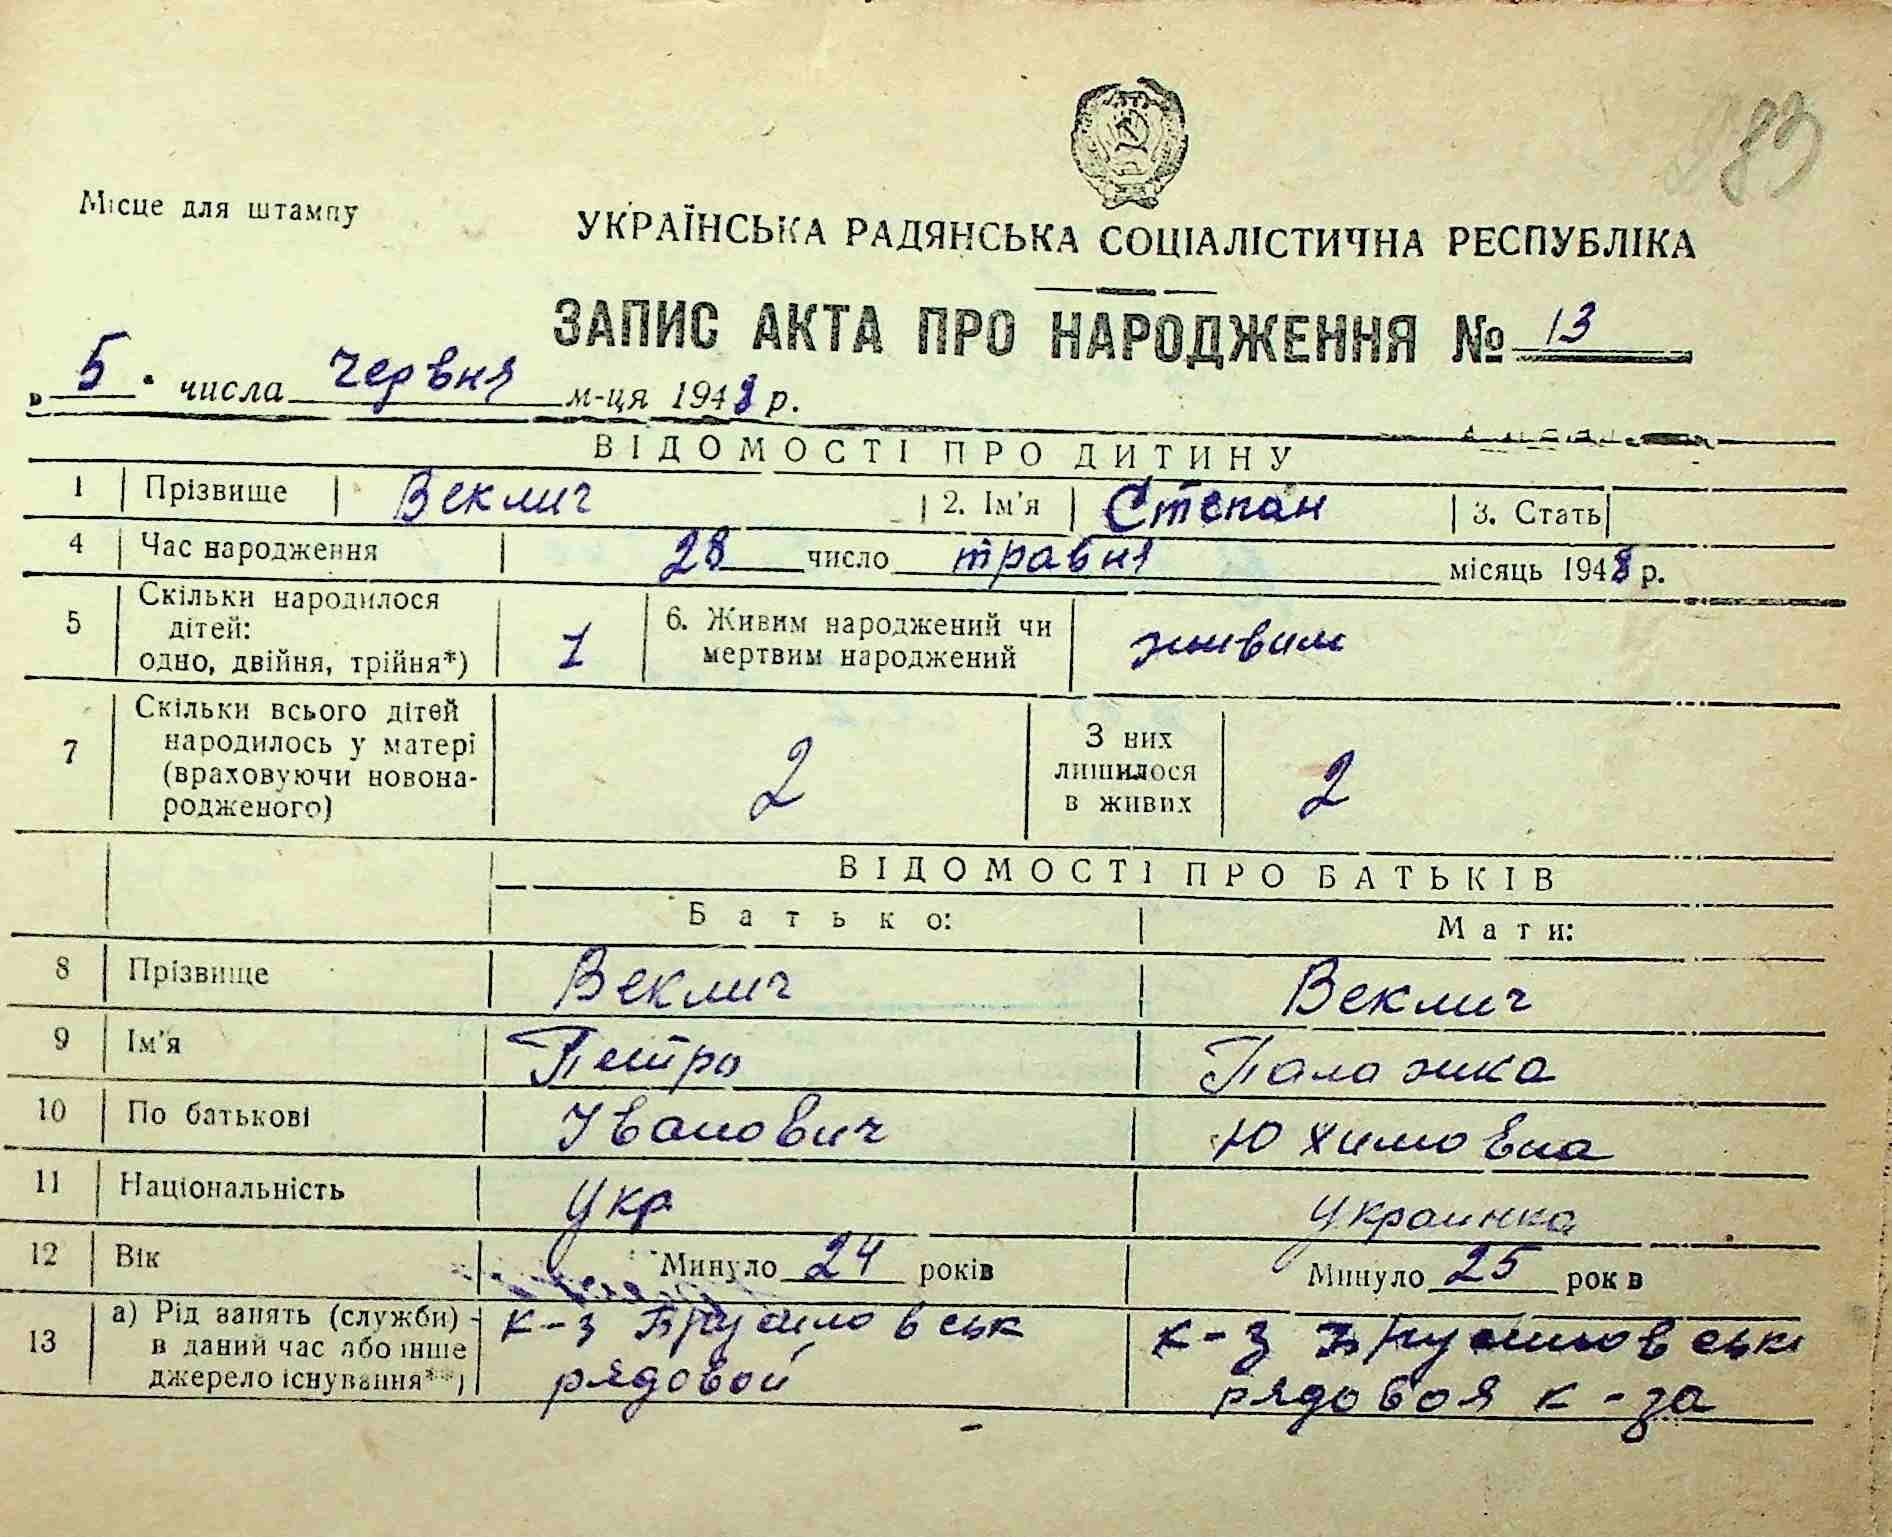 83
Місце для штампу
УКРАЇНСЬКА РАДЯНСЬКА СОЦІАЛІСТИЧНА РЕСПУБЛІКА
ЗАПИС АКТА ПРО НАРОДЖЕННЯ № 13
„ 5 " числа червня м-ця 1948 р.
ВІДОМОСТІ ПРО ДИТИНУ
1 Прізвище Веклич 2. Ім'я Степан 3. Стать
4 Час народження 28 число травня місяць 1948 р.
5 Скільки народилося
дітей:
одно, двійня, трійня*) 1
6. Живим народжений чи
мертвим народжений живим
7 Скільки всього дітей
народилось у матері
(враховуючи новона-
родженого) 2
З них
лишилося
в живих 2
ВІДОМОСТІ ПРО БАТЬКІВ
Батько: Мати:
8 Прізвище Веклич Веклич
9 Ім'я Петро Палажка
10 По батькові Іванович Юхимовна
11 Національність Укр украинка
12 Вік Минуло 24 років Минуло 25 рок в
13 а) Рід занять (служби)
в даний час або інше
джерело існування**)
к-з
рядовой
к-з
рядовоя к-за